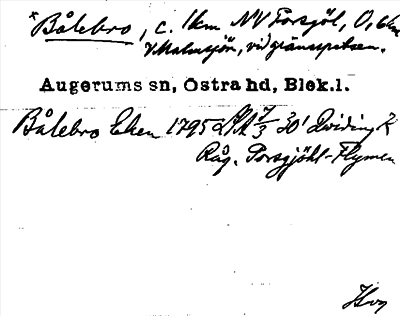 *Bålebro, c. 1km NV Torsjöl, 0,6km
V Malmsjön, vid gränsspetsen.
Augerums sn, Östra hd, Blek.l.
Bålebro Eken 1795 LSA 7/3 30' Qviding R
Råg. Torsgjöhl-Flymen